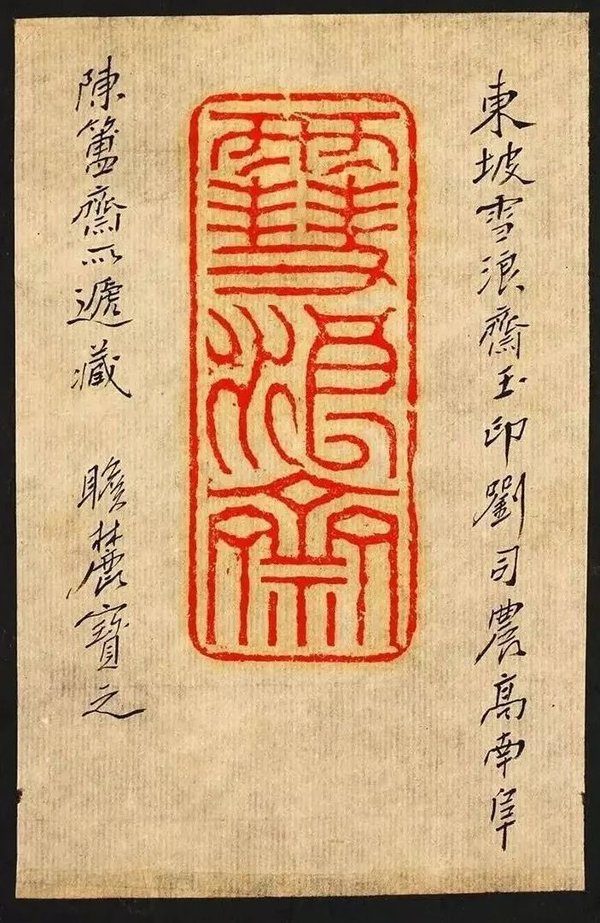 東坡雪浪齋玉印劉司農高南阜
雪浪齋
陳簠齋所遞藏 瞻麓寶之